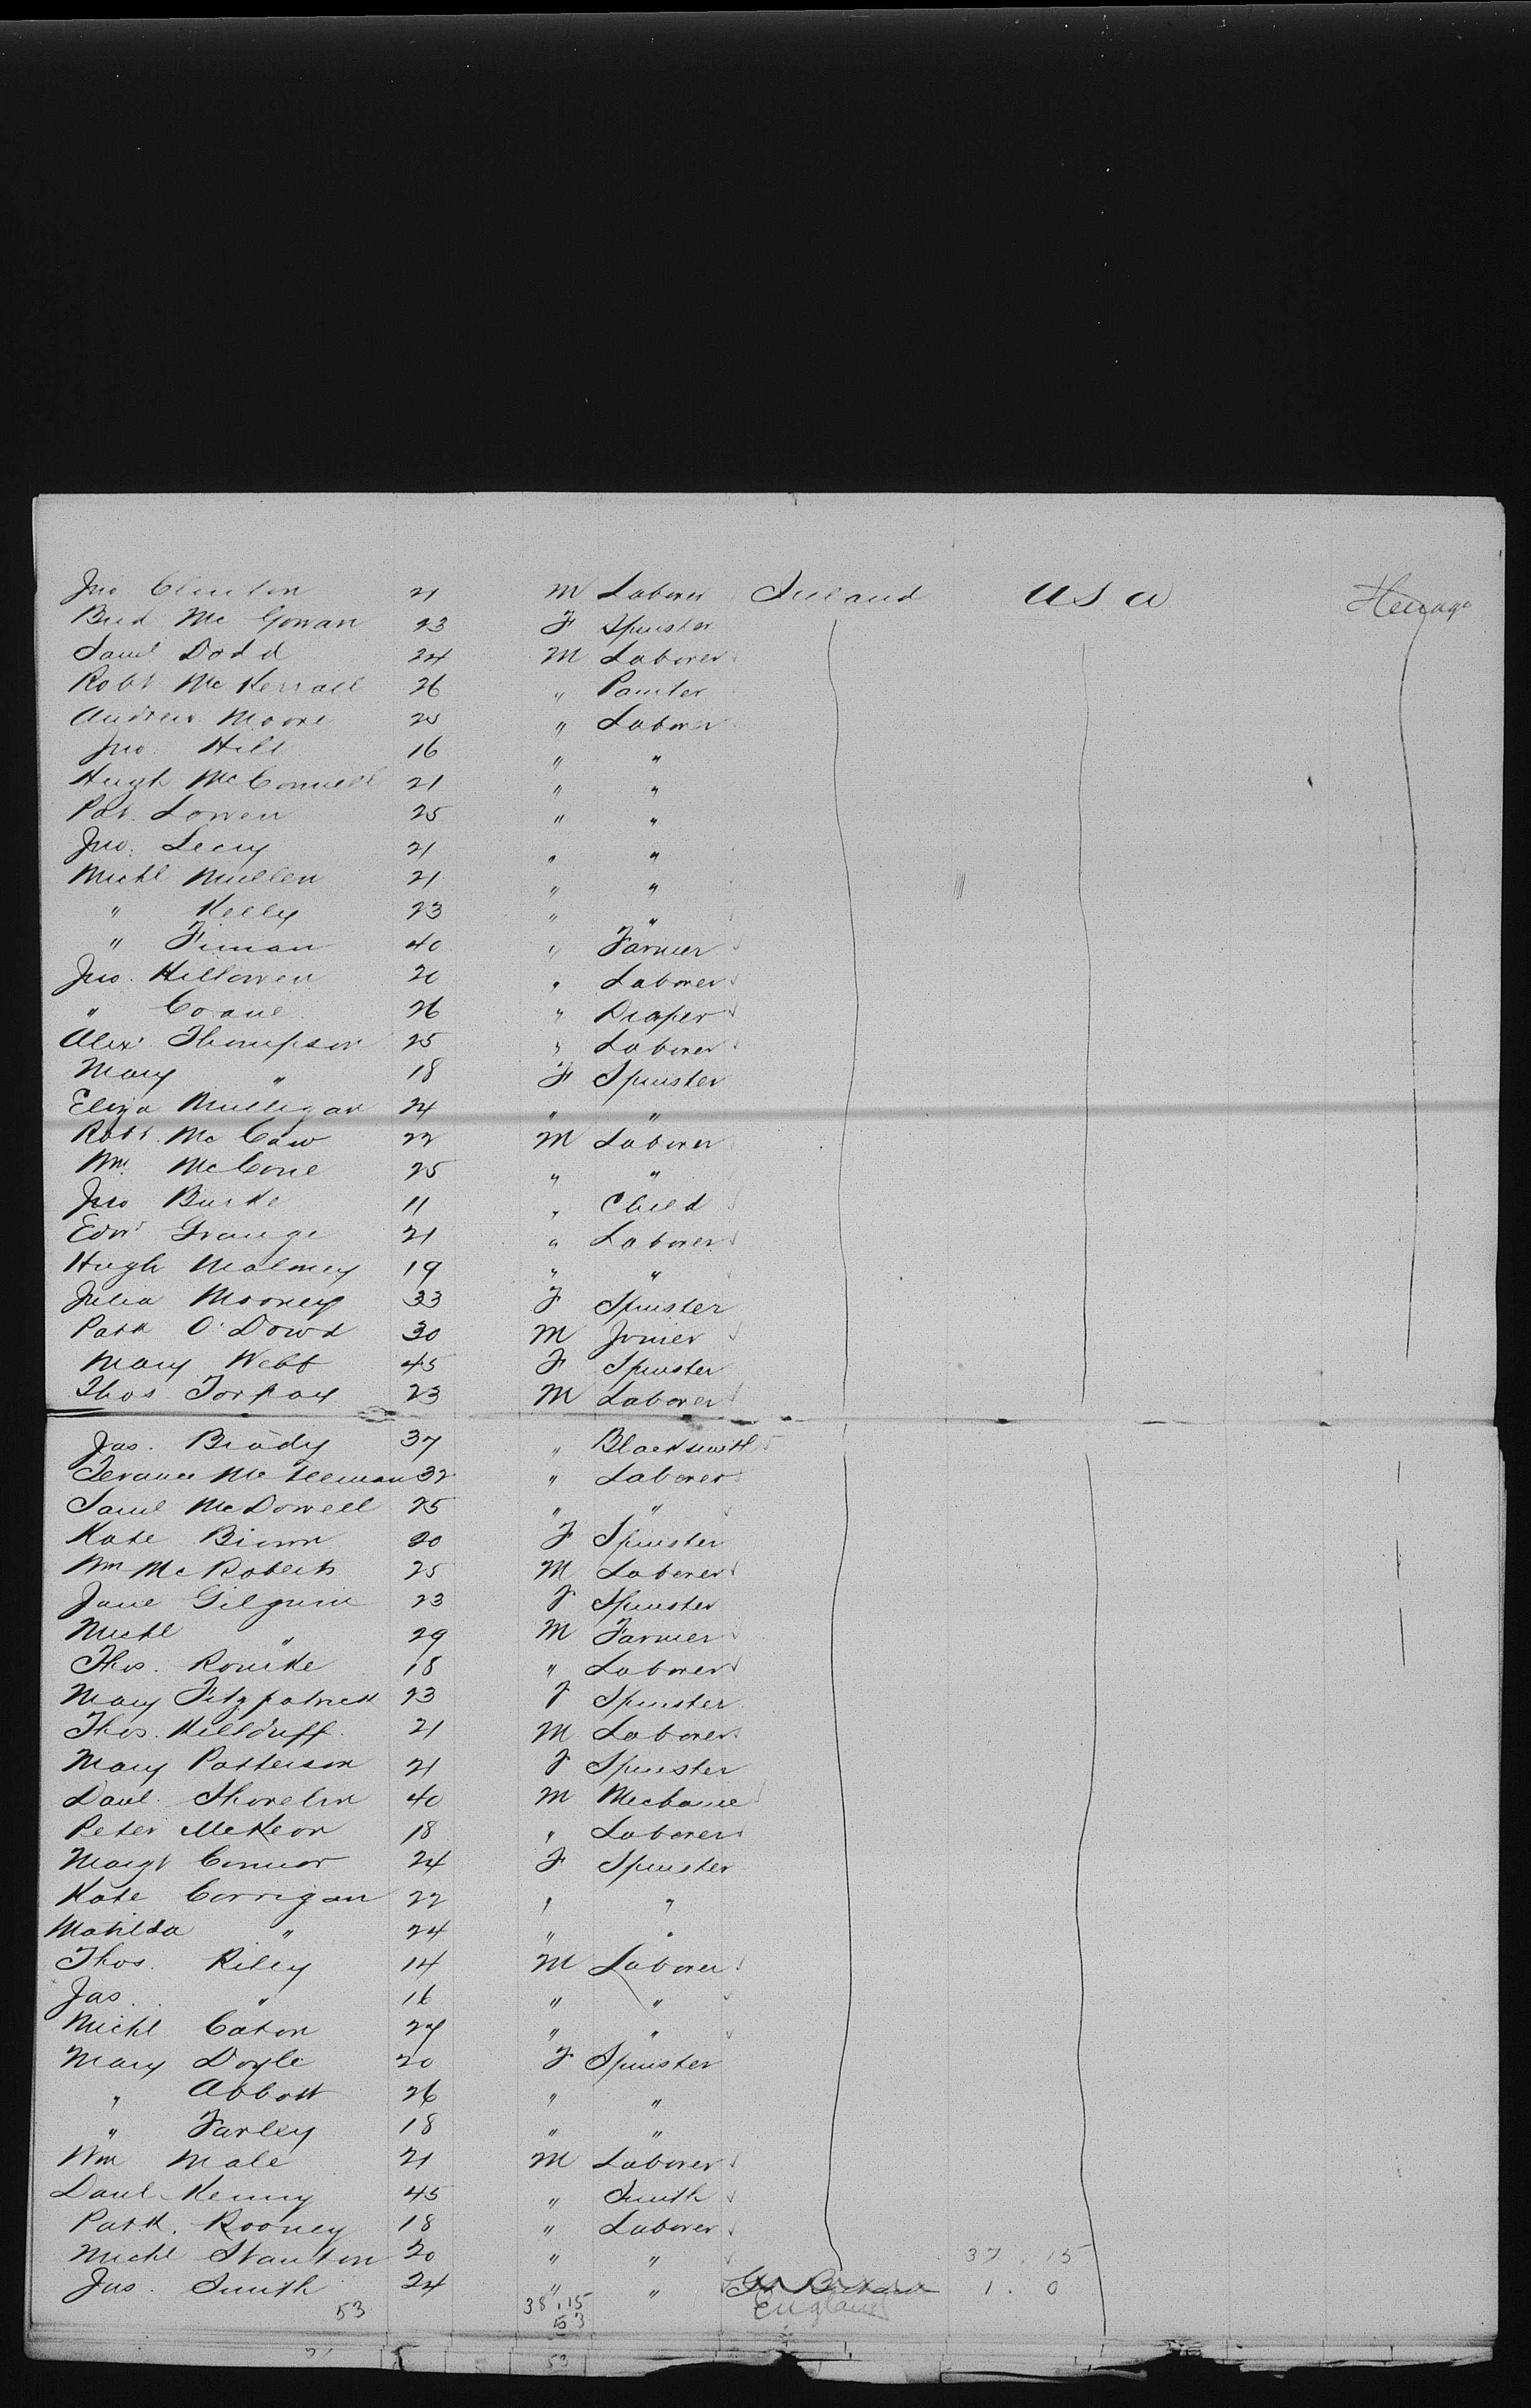 Jno Clinton 21 M Laborer Ireland U S A
Brid Mc Gowan 23 F Spinster
Saml Dodd 24 M Laborer
Robt McKerrall 26 " Painter
Andrew Moore 25 " Laborer
Jno. Hill 16 " "
Hugh McConnell 21 " "
Pat. Lowen 25 " "
Jno. Leery 21 " "
Michl Mullen 21 " "
" Kelly 23 " "
" Finan 40 " Farmer
Jno. Killowen 20 " Laborer
" Coane 26 " Draper
Alexr Thompson 25 " Laborer
Mary " 18 F Spinster
Eliza Mulligan 24 " "
Robt. McCaw 22 M Laborer
Wm McCone 25 " "
Jno Burke 11 " Child
Edwd Grange 21 " Laborer
Hugh Maloney 19 " "
Julia Mooney 33 F Spinster
Patk O'Dowd 30 M Joiner
Mary Webb 45 F Spinster
Thos Torpay 23 M Laborer
Jas. Brady 37 " Blacksmith
Terance Mc 32 " Laborer
Saml McDowell 25 " "
Kate 20 F Spinster
Wm McRoberts 25 M Laborer
Jane Gilgunn 23 F Spinster
Michl " 29 M Farmer
Thos. Rourke 18 " Laborer
Mary Fitzpatrick 23 F Spinster
Thos. Killduff 21 M Laborer
Mary Patterson 21 F Spinster
Danl. 40 M Mechanic
Peter McKeon 18 " Laborer
Margt Connor 24 F Spinster
Kate Corrigan 22 " "
Matilda " 24 " "
Thos. Riley 14 M Laborer
Jas. " 16 " "
Michl Caton 27 " "
Mary Doyle 20 F Spinster
" Abbott 26 " "
" Farley 18 " "
Wm Male 21 M Laborer
Danl Kenny 45 " Smith
Patk. Rooney 18 " Laborer
Michl Stanton 20 " " 37 . 15
Jas. Smith 24 " " 1 . 0
53 38.15 England
53
53